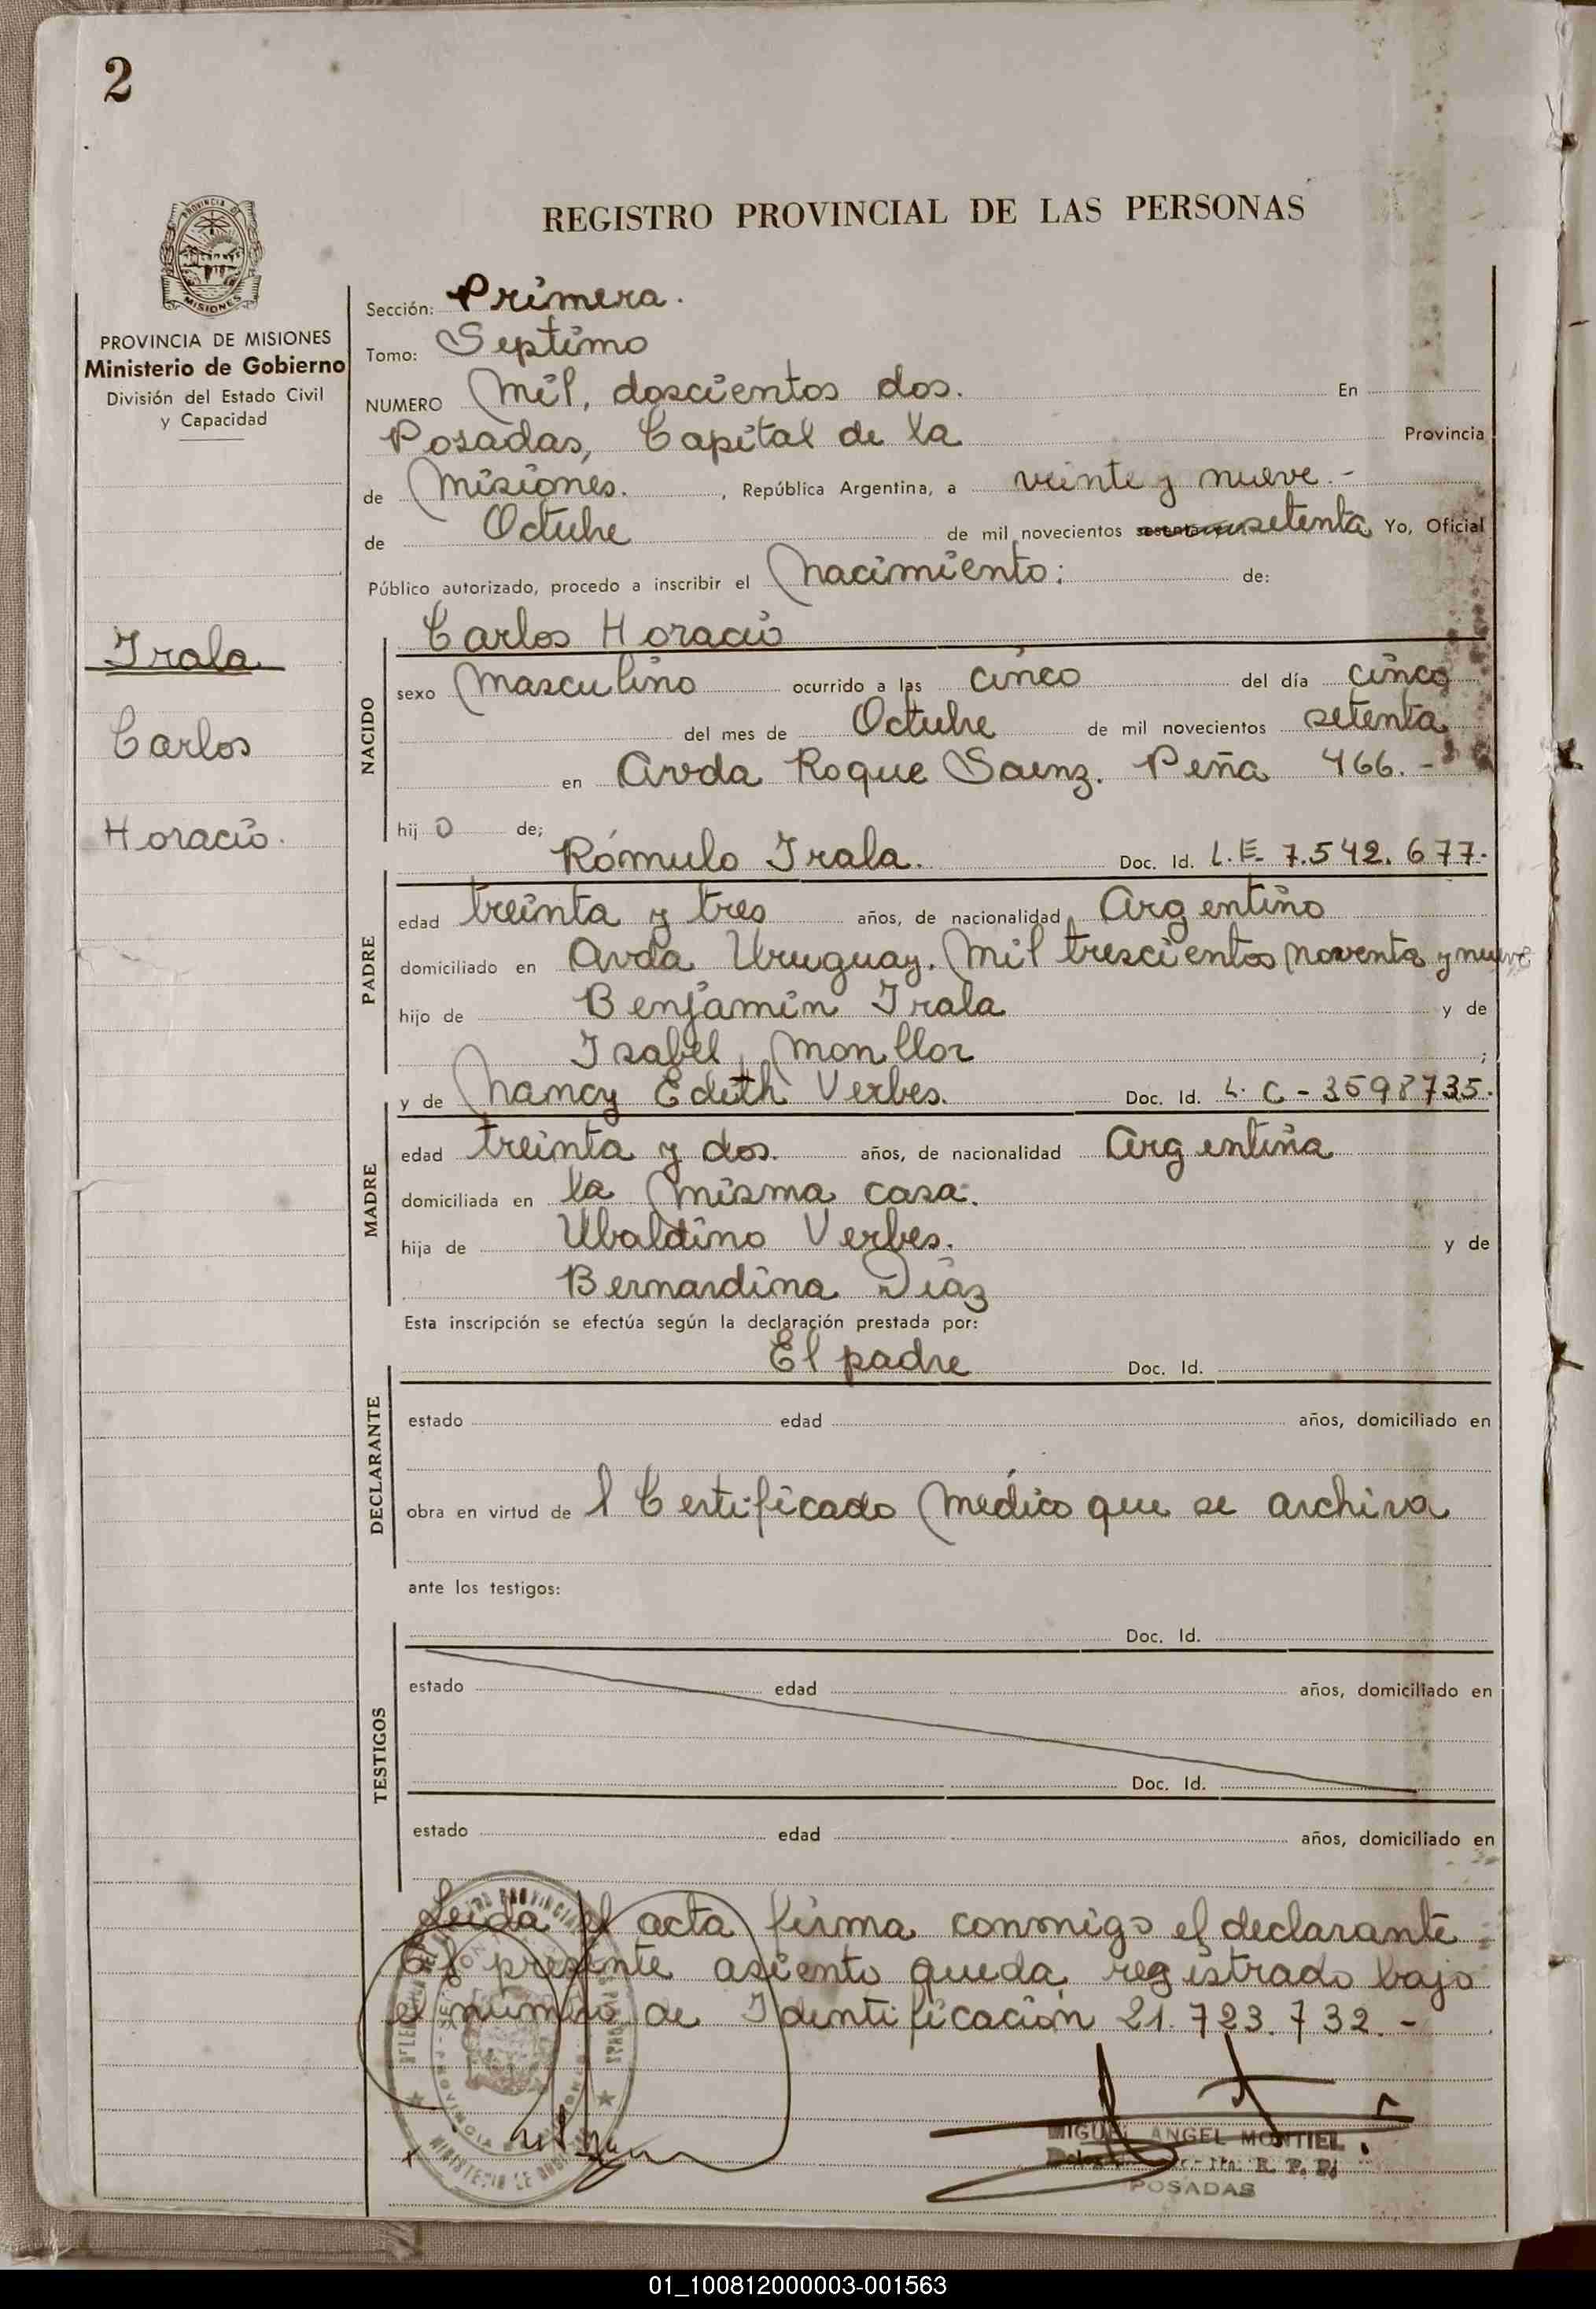 2
REGISTRO PROVINCIAL DE LAS PERSONAS
MISIONES
PROVINCIA DE MISIONES
Ministerio de Gobierno
División del Estado Civil
y Capacidad
Irala
Carlos
Horacio.
Sección: Primera.
Tomo: Septimo
NUMERO Mil, doscientos dos. En
Posadas, Capital de la Provincia
de Misiones. , República Argentina, a veinte y nueve.-
de Octubre de mil novecientos setenta Yo, Oficial
Público autorizado, procedo a inscribir el Nacimiento: de:
Carlos Horacio
NACIDO
sexo Masculino ocurrido a las cinco del día cinco
del mes de Octubre de mil novecientos setenta
en Avda Roque Saenz. Peña 466.-
hij o de;
Rómulo Irala. Doc. Id. L.E. 7.542.677.
PADRE
edad treinta y tres años, de nacionalidad Argentino
domiciliado en Avda Uruguay. Mil trescientos noventa y nueve
hijo de Benjamin Irala y de
Isabel Monllor ;
y de Nancy Edith Verbes. Doc. Id. L. C - 3598735.
MADRE
edad treinta y dos. años, de nacionalidad Argentina
domiciliada en la misma casa.
hija de Ubaldino Verbes. y de
Bernardina Diaz
Esta inscripción se efectúa según la declaración prestada por:
El padre Doc. Id.
DECLARANTE
estado edad años, domiciliado en
obra en virtud de l Certificado Médico que se archiva
ante los testigos:
Doc. Id.
TESTIGOS
estado edad años, domiciliado en
Doc. Id.
estado edad años, domiciliado en
Leida el acta firma conmigo el declarante
El presente asiento queda registrado bajo
el número de Identificación 21.723.732.-
MIGUEL ANGEL MONTIEL
R. P. P.
POSADAS
01_100812000003-001563